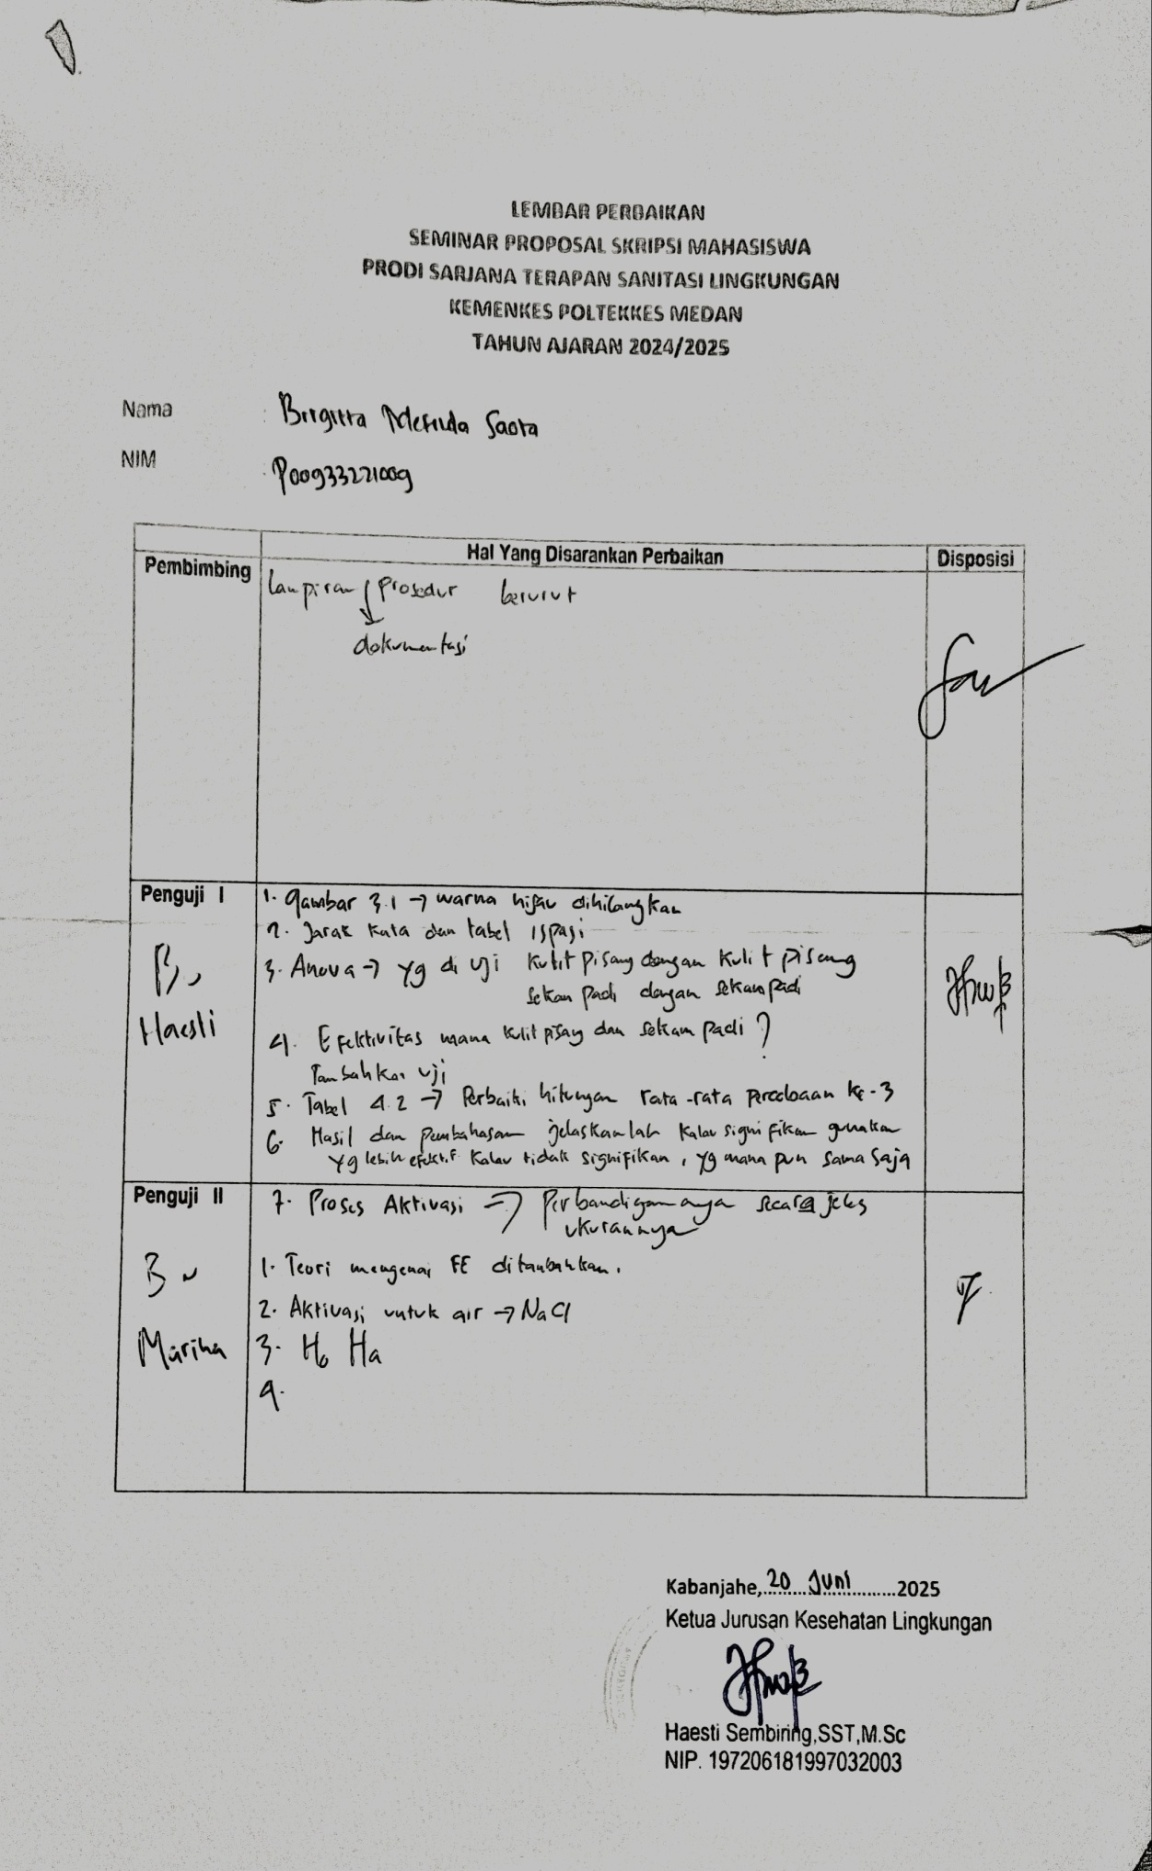 LEMBAR PERBAIKAN
SEMINAR PROPOSAL SKRIPSI MAHASISWA
PRODI SARJANA TERAPAN SANITASI LINGKUNGAN
KEMENKES POLTEKKES MEDAN
TAHUN AJARAN 2024/2025
Nama : Birgitta Saota
NIM : P00933221009
Hal Yang Disarankan Perbaikan Disposisi
Pembimbing
Lampiran / Prosedur berurut
↓
dokumentasi
Penguji I
Bu
Haesti
1. Gambar 3.1 → warna hijau dihilangkan
2. Jarak kata dan tabel 1 spasi
3. Anova → yg di uji kulit pisang dengan kulit pisang
sekam padi dengan sekam padi
4. Efektivitas mana kulit pisang dan sekam padi?
Tambahkan uji
5. Tabel 4.2 → Perbaiki hitungan rata-rata percobaan ke-3
6. Hasil dan pembahasan jelaskanlah kalau signifikan gunakan
yg lebih efektif kalau tidak signifikan, yg mana pun sama saja
Penguji II
Bu
Marina
7. Proses Aktivasi → Perbandigannya secara jelas
ukurannya
1. Teori mengenai FE ditambahkan.
2. Aktivasi untuk air → NaCl
3. Ho Ha
4.
Kabanjahe, 20 Juni 2025
Ketua Jurusan Kesehatan Lingkungan
Haesti Sembiring,SST,M.Sc
NIP. 197206181997032003